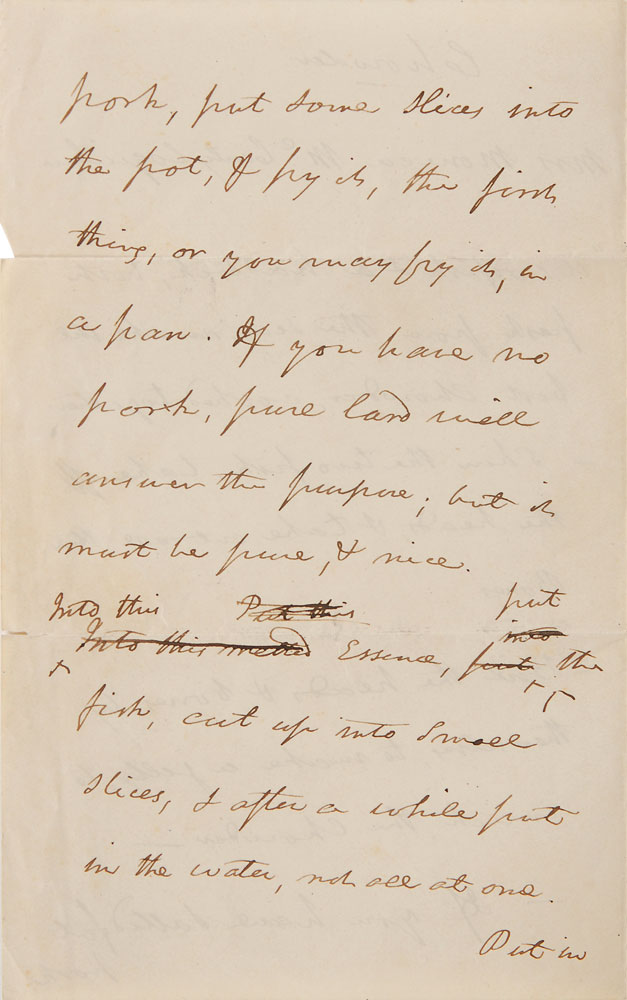 pork, put some slices into
the pot, & fry it, the first
thing, or you may fry it, in
a pan. If you have no
pork, pure lard will
answer the purpose; but it
must be pure, & nice.
Into this Put this put
Into this melted Essence, into put the
fish, cut up into small
slices, & after a while put
in the water, not all at once.
Put in